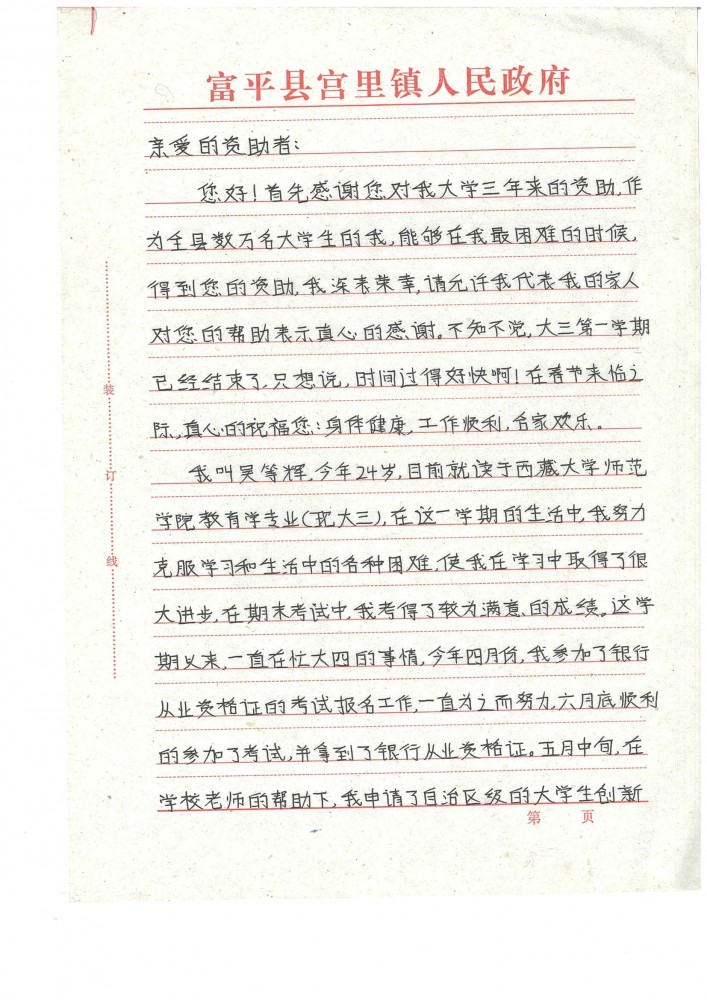 富平县宫里镇人民政府
亲爱的资助者:
您好!首先感谢您对我大学三年来的资助,作
为全县数万名大学生的我,能够在我最困难的时候,
得到您的资助,我深表荣幸,请允许我代表我的家人
对您的帮助表示真心的感谢。不知不觉,大三第一学期
已经结束了,只想说,时间过得好快啊!在春节来临之
际,真心的祝福您:身体健康,工作顺利,合家欢乐。
我叫吴等辉,今年24岁,目前就读于西藏大学师范
学院教育学专业(现大三),在这一学期的生活中,我努力
克服学习和生活中的各种困难,使我在学习中取得了很
大进步,在期末考试中,我考得了较为满意的成绩。这学
期以来,一直在忙大四的事情,今年四月份,我参加了银行
从业资格证的考试报名工作,一直为之而努力,六月底顺利
的参加了考试,并拿到了银行从业资格证。五月中旬,在
学校老师的帮助下,我申请了自治区级的大学生创新
装
订
线
第 页